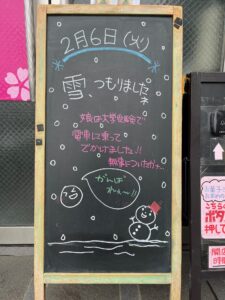 2月6日(火)
雪、つもりましたネ
娘は大学受験で
電車に乗って
でかけました!!
無事についたかナ…
がんば
れぇ〜!!
こちら
ボタ
押して